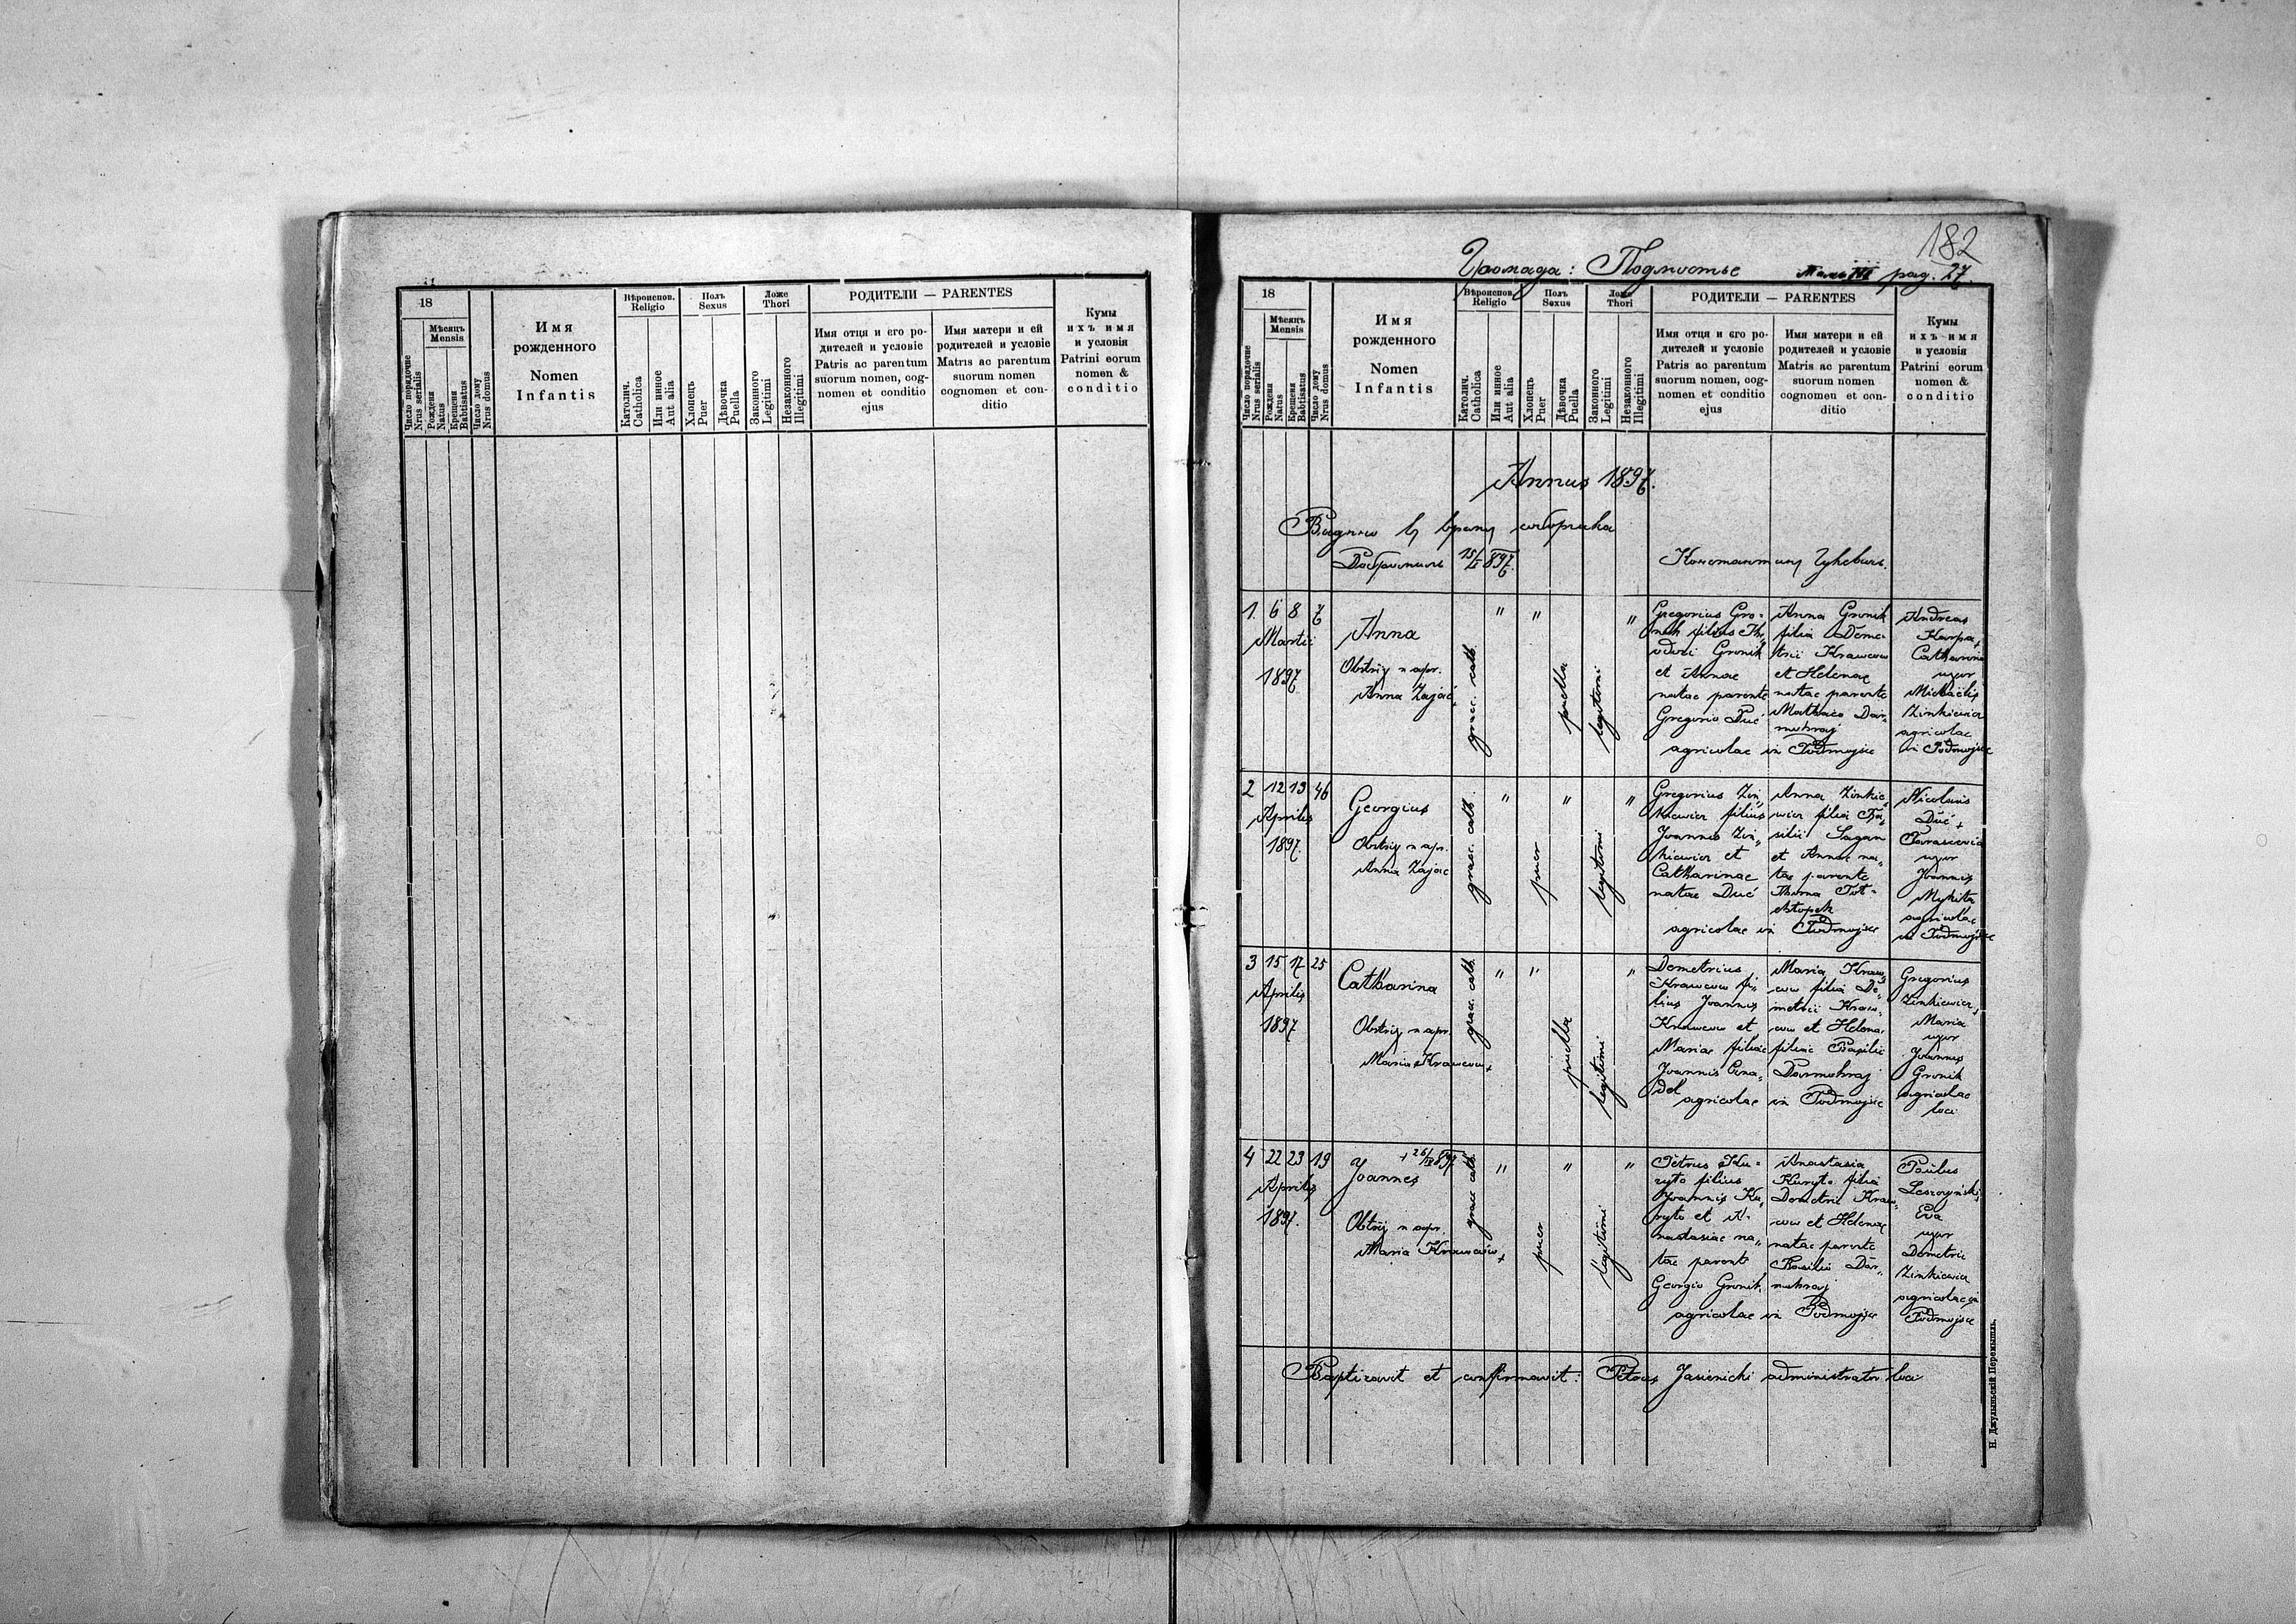 18
Мѣсяць
Mensis
Число порядочне
Nrus serialis
Рожденя
Natus
Крещеня
Babtisatus
Число дому
Nrus domus
Имя
рожденного
Nomen
Infantis
Вѣроиспов.
Religio
Католич.
Catholica
Или инное
Aut alia
Полъ
Sexus
Хлопецъ
Puer
Дѣвочка
Puella
Ложе
Thori
Законного
Legitimi
Незаконного
Illegitimi
РОДИТЕЛИ — PARENTES
Имя отця и его ро-
дителей и условіе
Patris ac parentum
suorum nomen, cog-
nomen et conditio
ejus
Имя матери и ей
родителей и условіе
Matris ac parentum
suorum nomen
cognomen et con-
ditio
Кумы
ихъ имя
и условія
Patrini eorum
nomen &
conditio
182
Громада: Подмостье
III pag. 27.
18
Мѣсяць
Mensis
Число порядочне
Nrus serialis
Рожденя
Natus
Крещеня
Babtisatus
Число дому
Nrus domus
Имя
рожденного
Nomen
Infantis
Вѣроиспов.
Religio
Католич.
Catholica
Или инное
Aut alia
Полъ
Sexus
Хлопецъ
Puer
Дѣвочка
Puella
Ложе
Thori
Законного
Legitimi
Незаконного
Illegitimi
РОДИТЕЛИ — PARENTES
Имя отця и его ро-
дителей и условіе
Patris ac parentum
suorum nomen, cog-
nomen et conditio
ejus
Имя матери и ей
родителей и условіе
Matris ac parentum
suorum nomen
cognomen et con-
ditio
Кумы
ихъ имя
и условія
Patrini eorum
nomen &
conditio
Annus 1897.
1. 6 8 7
Martii
1897
Anna
Obstriz n apr.
Anna Zając
graec. cath.
"
"
puella
legitimi
"
Gregorius Gro-
nik filius
Gronik
et Annae
natae parente
Gregorio Duć
Anna Gronik
filia Deme-
trii Krawcow
et Helenae
natae parente
Mathaeo Dar-
mohraj
agricolae in Podmojsce
Andreas
Karpa,
Catharina
uxor
Michaelis
Zinkiewicz
agricolae
in Podmojsce
2 12 13 46
Aprilis
1897.
Georgius
Obstriz n apr.
Anna Zając
graec. cath.
"
puer
"
legitimi
"
Gregorius Zin-
kiewicz filius
Joannis Zin-
kiewicz et
Catharinae
natae Duć
Anna Zinkie-
wicz filia Ba-
silii Sagan
et Annae na-
tae parente
Thoma
agricolae in Podmojsce
Nicolaus
Duć +
Parascevia
uxor
Joannis
Mykita
agricolae
in Podmojsce
3 15 17 25
Aprilis
1897
Catharina
Obstriz n apr.
Maria Krawcow
graec. cath.
"
"
puella
legitimi
"
Demetrius
Krawcow fi-
lius Joannis
Krawcow et
Mariae filiae
Joannis
Maria Kraw-
cow filia De-
metrii Kraw-
cow et Helenae
filiae Basilii
Darmohraj
agricolae in Podmojsce
Gregorius
Zinkiewicz,
Maria
uxor
Joannis
Gronik
agricolae
loci
4 22 23 19
Aprilis
1897.
Joannes
Obstriz n apr.
Maria Krawcow
graec. cath.
"
puer
"
legitimi
"
Petrus Ku-
ryto filius
Joannis Ku-
ryto et A-
nastasiae na-
tae parente
Georgio Gronik
Anastasia
Kuryto filia
Demetrii Kraw-
cow et Helenae
natae parente
Basilio Dar-
mohraj
agricolae in Podmojsce
Paulus
Leszczyński,
Eva
uxor
Demetrii
Zinkiewicz
agricolae in
Podmojsce
Baptizavit et confirmavit: Petrus Jasienicki administrator loci
Н. Джулыньскій Перемышль.